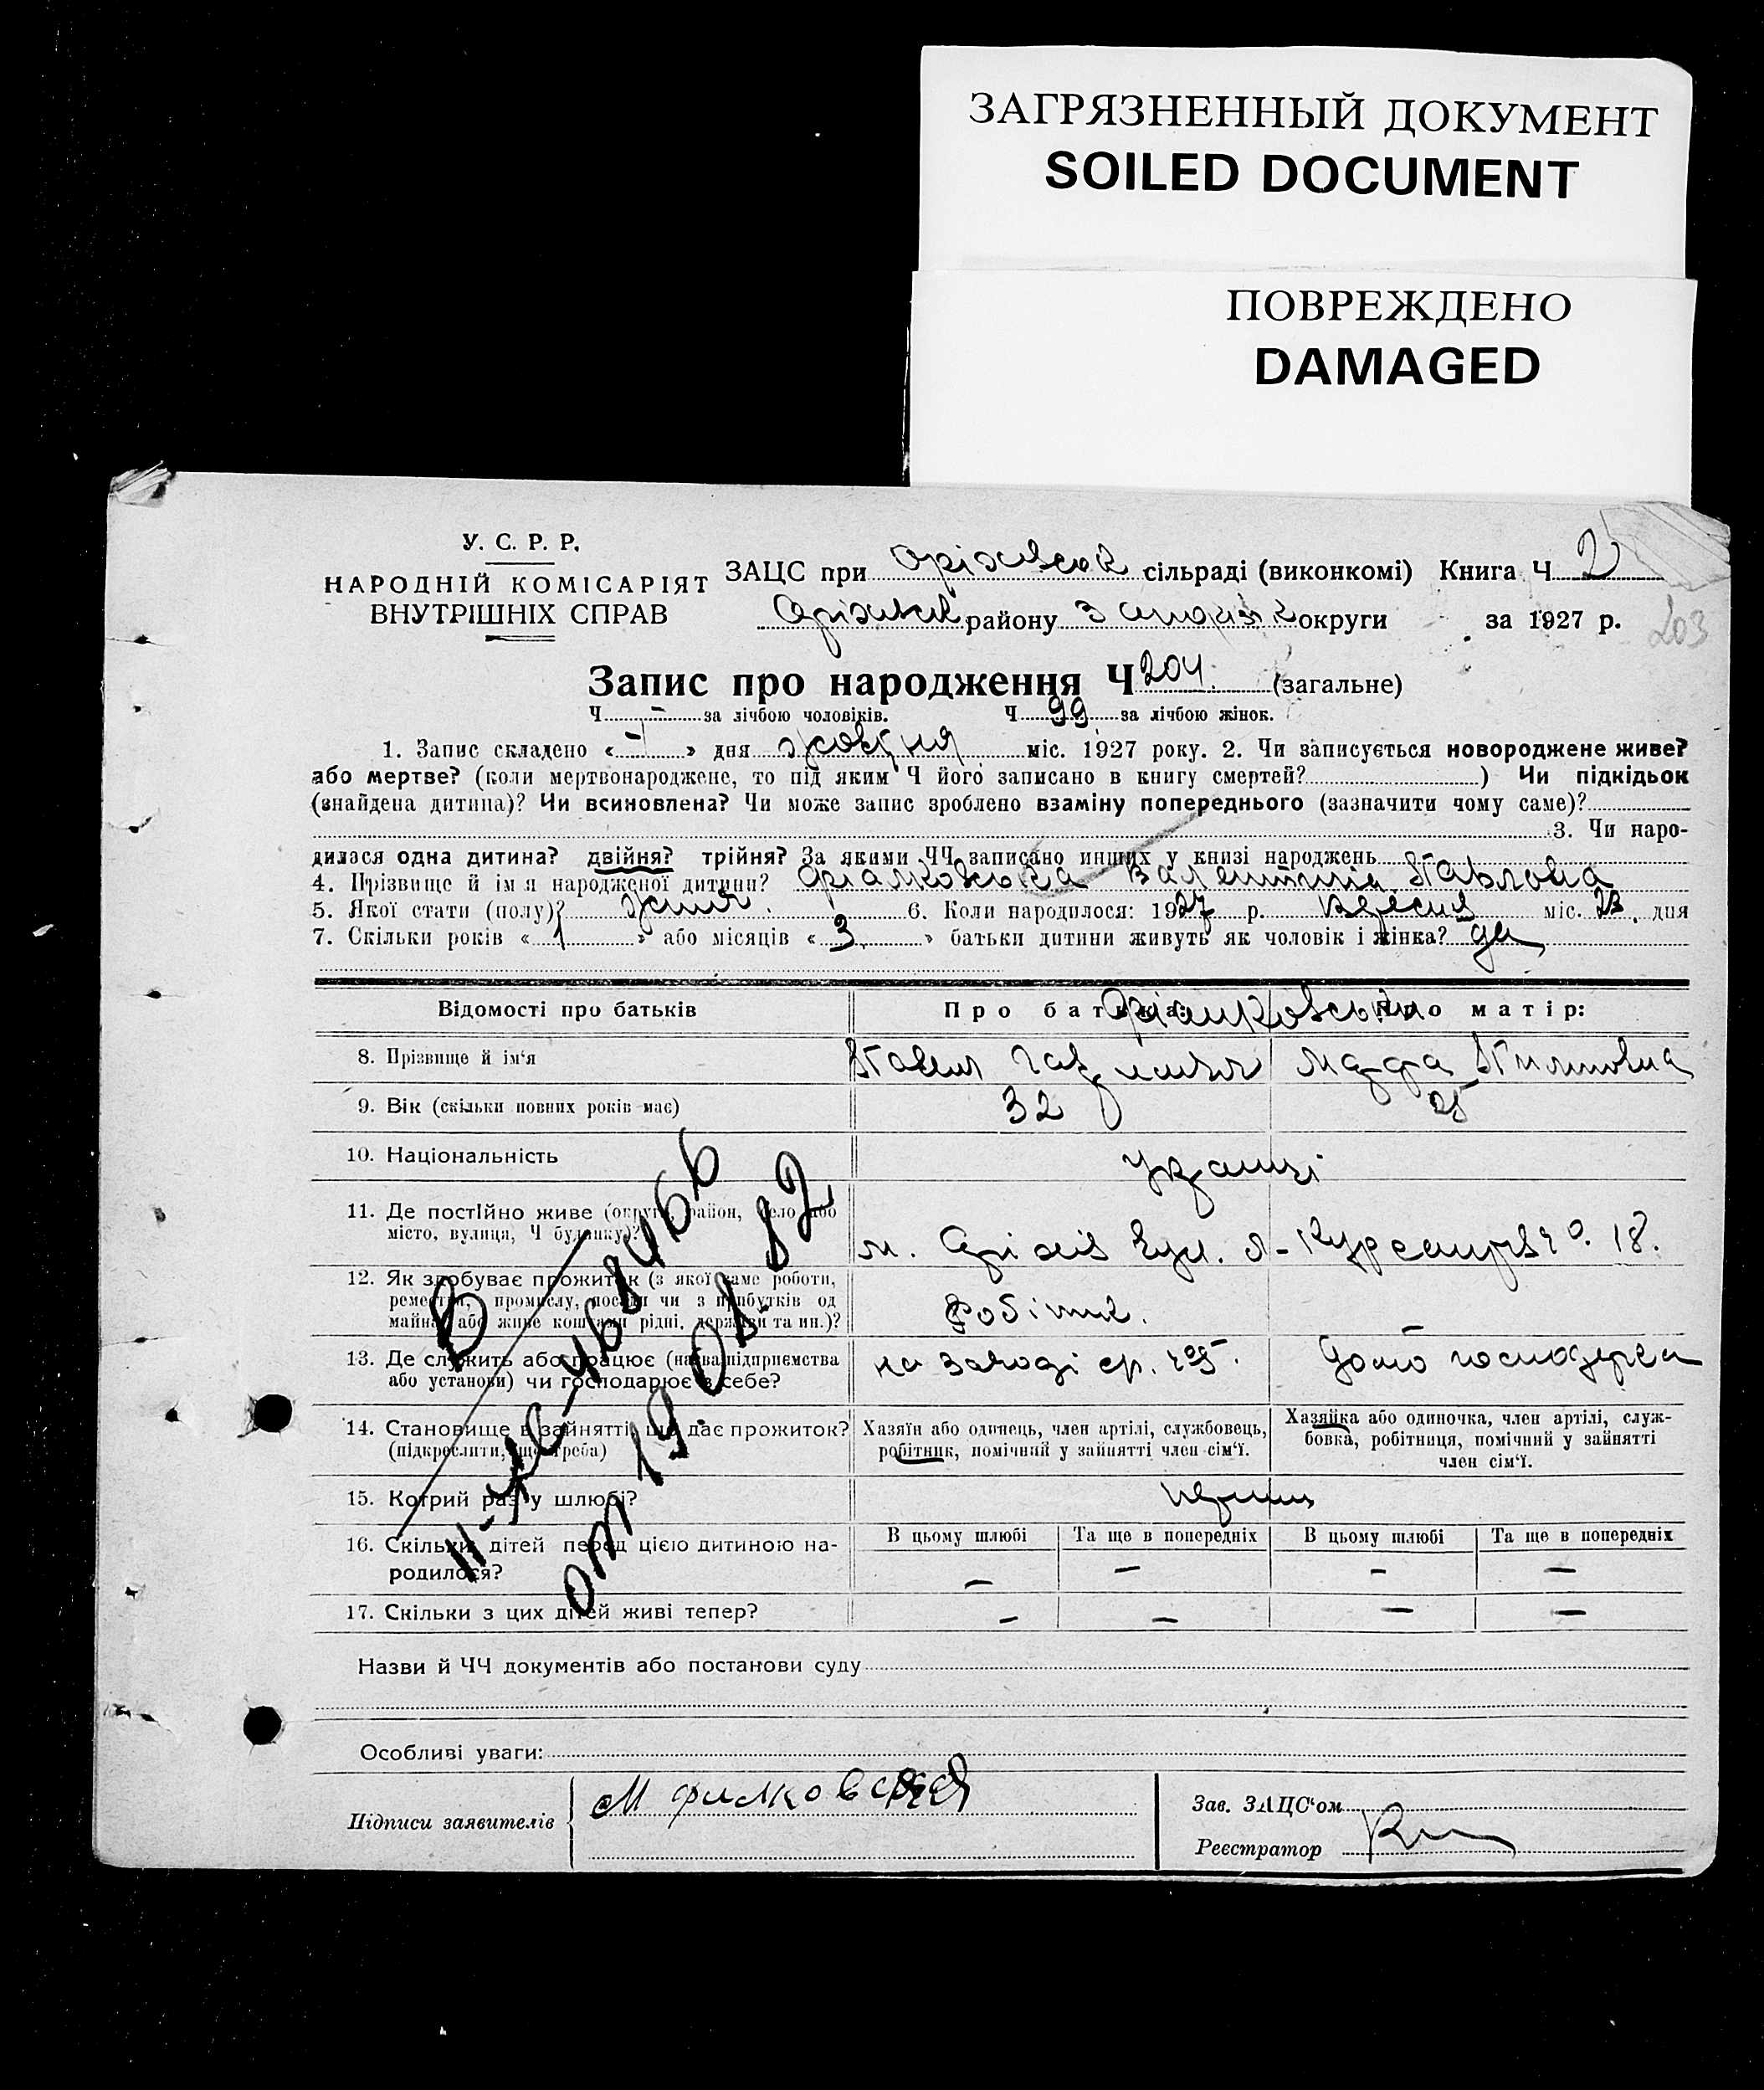 ЗАГРЯЗНЕННЫЙ ДОКУМЕНТ
SOILED DOCUMENT
ПОВРЕЖДЕНО
DAMAGED
У. С. Р. Р.
НАРОДНІЙ КОМІСАРІЯТ
ВНУТРІШНІХ СПРАВ
ЗАЦС при сільраді (виконкомі) Книга Ч 2
району округи за 1927 р. 203
Запис про народження Ч 204. (загальне)
Ч - за лічбою чоловіків. Ч 99 за лічбою жінок.
1. Запис складено « » дня жовтня міс. 1927 року. 2. Чи записується новороджене живе?
або мертве? (коли мертвонароджене, то під яким Ч його записано в книгу смертей? ) Чи підкідьок
(знайдена дитина)? Чи всиновлена? Чи може запис зроблено взаміну попереднього (зазначити чому саме)?
3. Чи наро-
дилася одна дитина? двійня? трійня? За якими ЧЧ записано инших у книзі народжень
4. Прізвище й ім'я народженої дитини? Фіалковська Валентина Павловна
5. Якої стати (полу)? жіноч. 6. Коли народилося: 1927 р. вересня міс. 23. дня
7. Скільки років « 1 » або місяців « 3 » батьки дитини живуть як чоловік і жінка? да
Відомості про батьків
Про батька: Про матір:
Фіалковські
8. Прізвище й ім'я
Павел Марфа
9. Вік (скільки повних років має)
32 25
10. Національність
Українці
11. Де постійно живе (округа, район, село або
місто, вулиця, Ч будинку)?
м. Оріхів вул. 18.
12. Як здобуває прожиток (з якої саме роботи,
ремества, промислу, посади чи з прибутків од
майна, або живе коштами рідні, держави та ин.)?
робітник.
13. Де служить або працює (назва підприємства
або установи) чи господарює в себе?
на заводі домо господарка
14. Становище в зайнятті, що дає прожиток?
(підкреслити, що треба)
Хазяїн або одинець, член артілі, службовець,
робітник, помічний у зайнятті член сім'ї.
Хазяйка або одиночка, член артілі, служ-
бовка, робітниця, помічний у зайнятті
член сім'ї.
15. Котрий раз у шлюбі?
первий
16. Скільки дітей перед цією дитиною на-
родилося?
В цьому шлюбі Та ще в попередніх В цьому шлюбі Та ще в попередніх
– – – –
17. Скільки з цих дітей живі тепер?
– – – –
от 19 01 82
Назви й ЧЧ документів або постанови суду
Особливі уваги:
Підписи заявителів
М Фиалковская
Зав. ЗАЦС'ом
Реєстратор